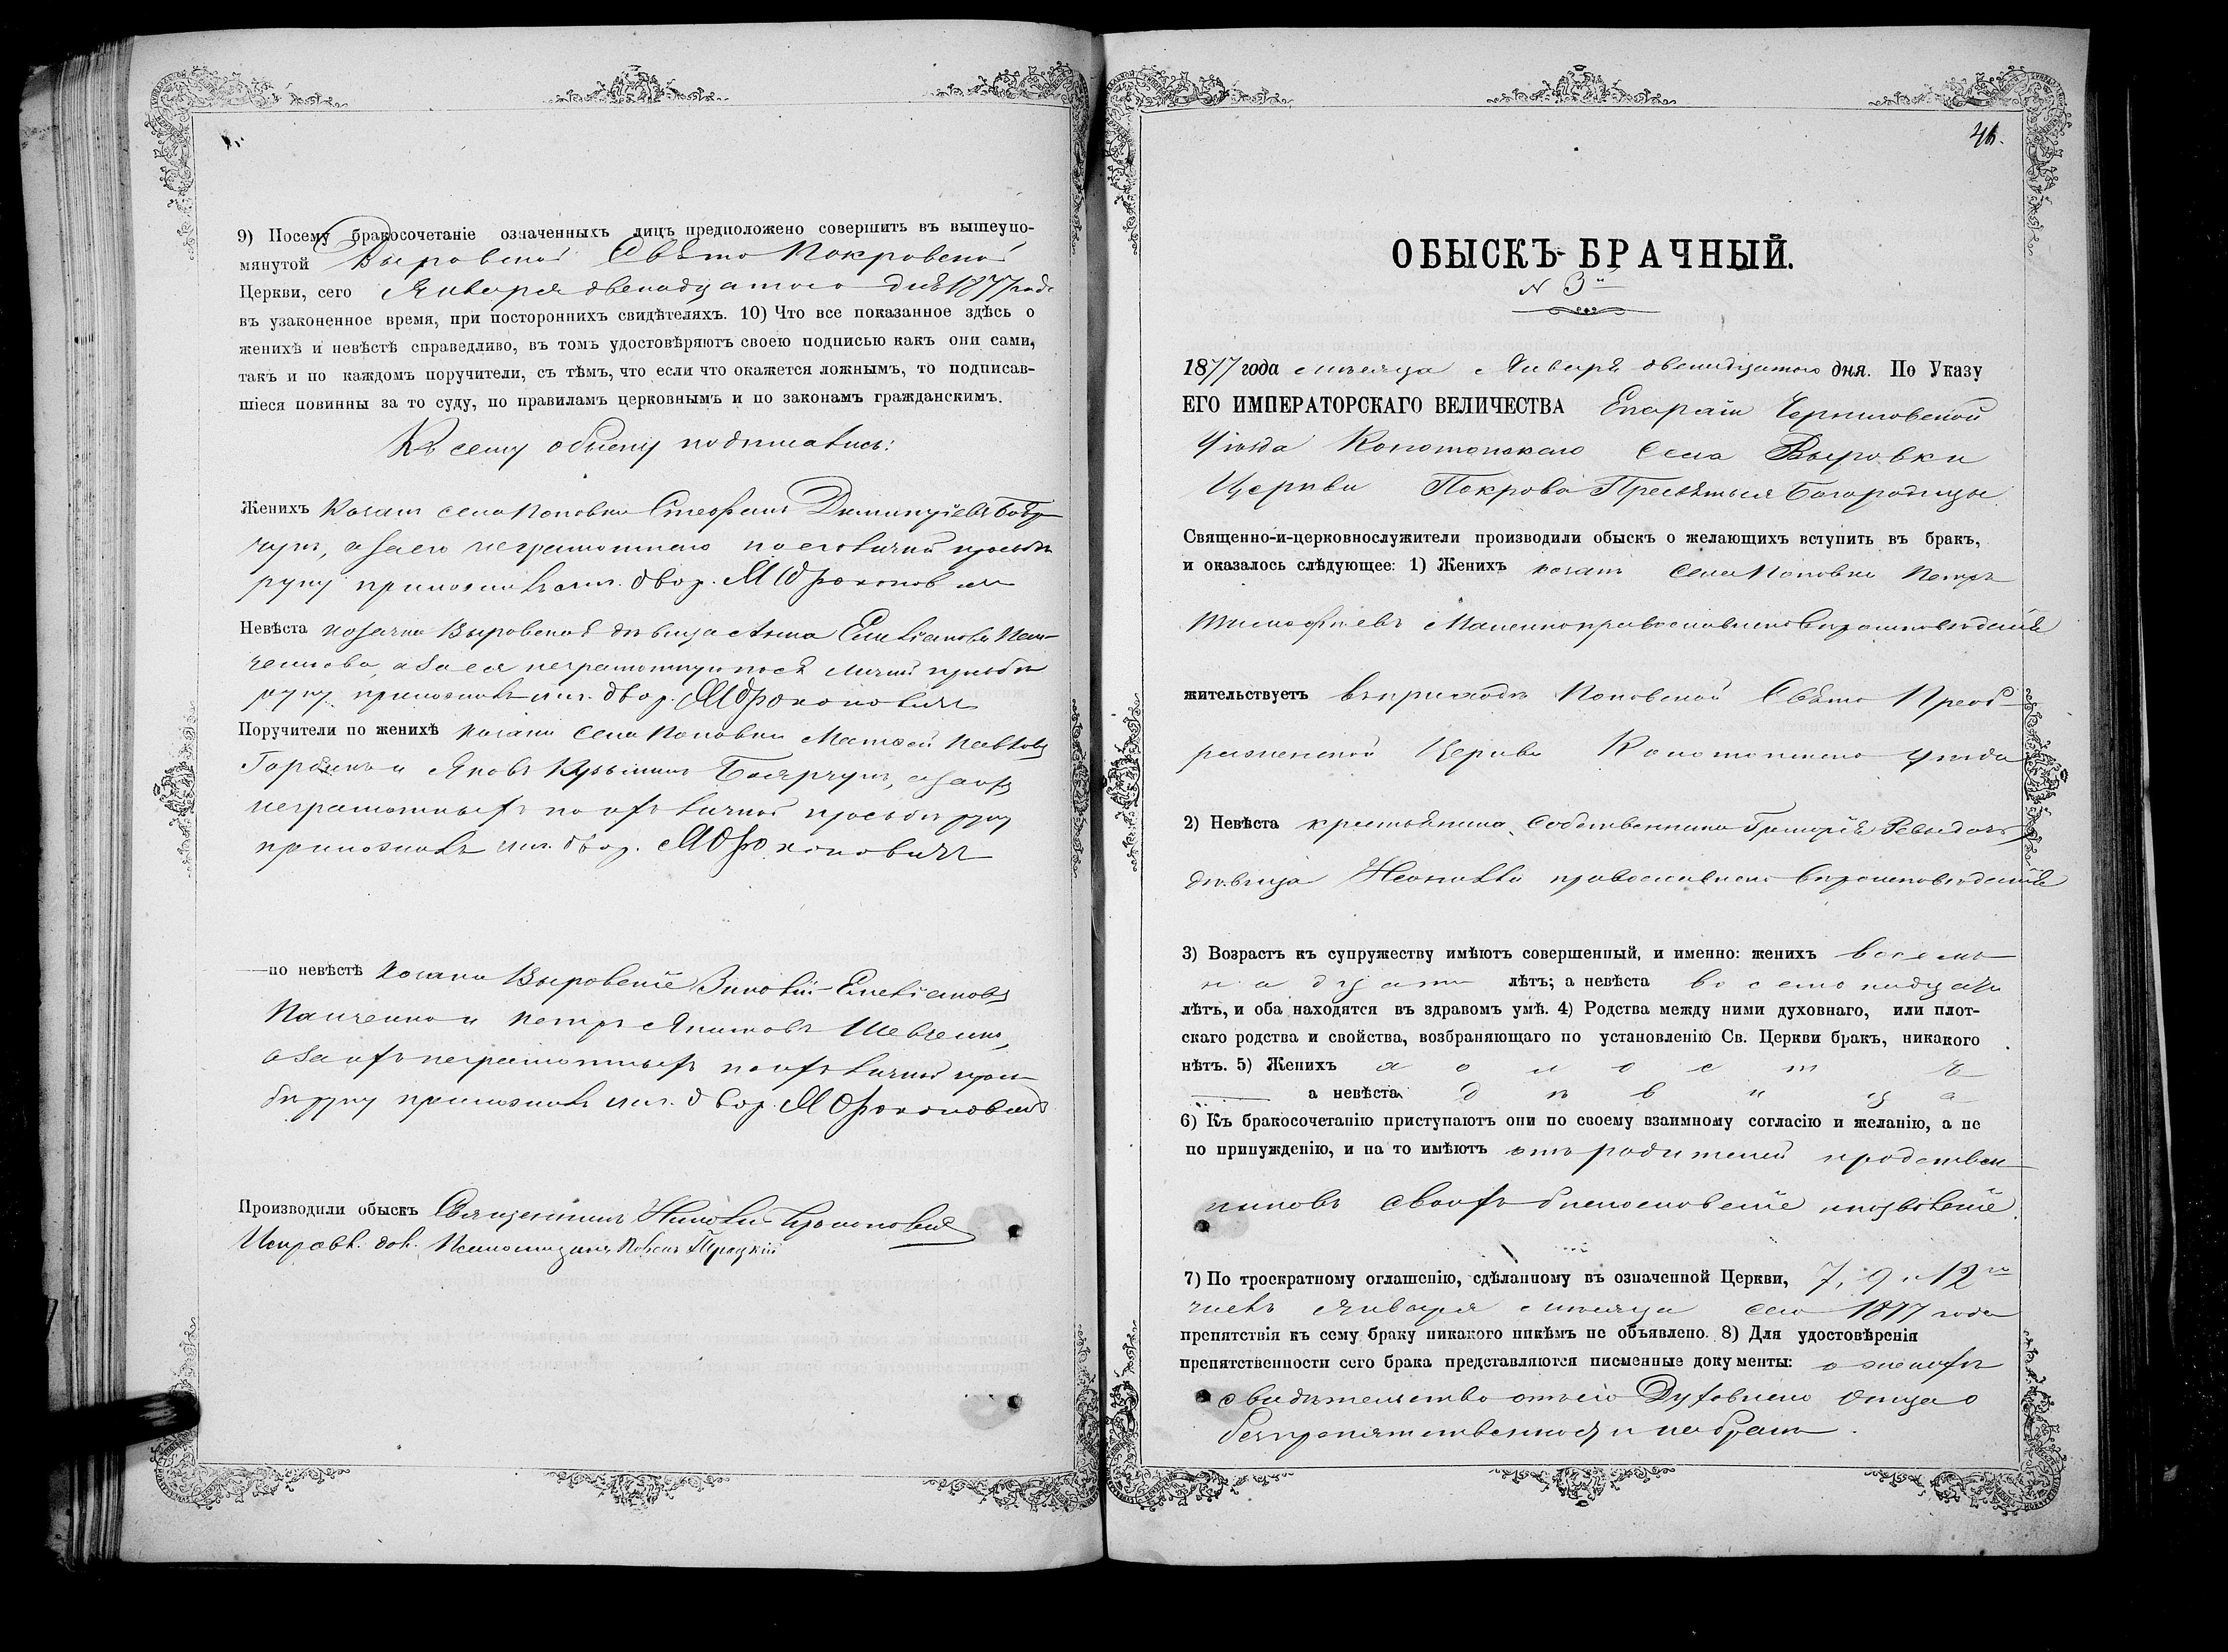 9) Посему бракосочетаніе означенныхъ лицъ предположено совершить въ вышеупо-
мянутой Выровской Свято Покровской
Церкви, сего Января двенадцатого дня 1877 года
въ узаконенное время, при постороннихъ свидѣтеляхъ. 10) Что все показанное здѣсь о
женихѣ и невѣстѣ справедливо, въ томъ удостовѣряютъ своею подписью какъ они сами,
такъ и по каждомъ поручители, съ тѣмъ, что если что окажется ложнымъ, то подписав-
шіеся повинны за то суду, по правиламъ церковнымъ и по законамъ гражданскимъ.
Къ сему обыску подписались:
Женихъ козакъ села Поповки Стефанъ Димитріевъ
а за его неграмотнаго по его личной просьбѣ
руку приложилъ двор.
Невѣста козачка Выровская дѣвица Анна Емеліанова Пан-
ченкова, а за ея неграмотную по ея личной просьбѣ
руку приложилъ двор.
Поручители по женихѣ козаки села Поповки Матфей Павловъ
и Яковъ Кузьминъ а за ихъ
неграмотныхъ по ихъ личной просьбѣ руку
приложилъ двор.
—по невѣстѣ козаки Выровскіе Зиновій Емеліановъ
Панченко и Петръ Якимовъ Шевченко,
а за ихъ неграмотныхъ по ихъ личной прось-
бѣ руку приложилъ двор.
Производили обыскъ Священникъ
Исправл. дол. Псаломщика
46.
ОБЫСКЪ БРАЧНЫЙ.
N 3й
1877 года мѣсяца Января двенадцатого дня. По Указу
ЕГО ИМПЕРАТОРСКАГО ВЕЛИЧЕСТВА Епархіи Черниговской
Уѣзда Конотопскаго Села Выровки
Церкви Покрова Пресвятыя Богородицы
Священно-и-церковнослужители производили обыскъ о желающихъ вступить въ бракъ,
и оказалось слѣдующее: 1) Женихъ козакъ села Поповки Петръ
Тимофіевъ православнаго вѣроисповѣданія
жительствуетъ въ приходѣ Поповской Свято Преоб-
раженской Церкви Конотопскаго уѣзда
2) Невѣста крестьянина собственника Григорія
дѣвица православнаго вѣроисповѣданія
3) Возрастъ къ супружеству имѣютъ совершенный, и именно: женихъ восемь
надцать лѣтъ; а невѣста восемнадцать
лѣтъ, и оба находятся въ здравомъ умѣ. 4) Родства между ними духовнаго, или плот-
скаго родства и свойства, возбраняющаго по установленію Св. Церкви бракъ, никакого
нѣтъ. 5) Женихъ холостъ
а невѣста дѣвица
6) Къ бракосочетанію приступаютъ они по своему взаимному согласію и желанію, а не
по принужденію, и на то имѣютъ отъ родителей и родствен-
никовъ своихъ благословеніе и позволеніе.
7) По троекратному оглашенію, сдѣланному въ означенной Церкви, 7, 9 и 12го
числъ Января мѣсяца сего 1877 года
препятствія къ сему браку никакого никѣмъ не объявлено. 8) Для удостовѣренія
препятственности сего брака представляются писменные документы: о женихѣ
свидѣтельство отъ его Духовнаго Отца о
безпрепятственности на бракъ.